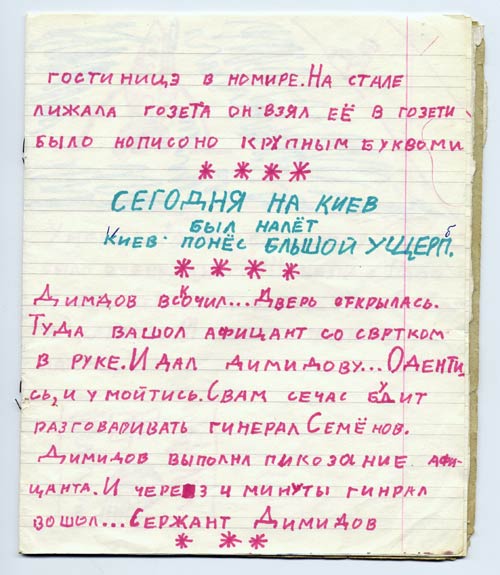 гостиницэ в номире. На стале
лижала гозета он взял её в гозети
было нописоно крупным буквоми
* * * *
СЕГОДНЯ НА КИЕВ
БЫЛ НАЛЁТ
КИЕВ ПОНЁС БЛЬШОЙ УЩЕРП.б
* * * *
Димдов вскочил... Дверь открылась.
Туда вашол афицант со свртком
в руке. И дал димидову... Оденти
сь, и умойтись. Свам сечас будит
разговаривать гинерал Семёнов.
Димидов выполнл пикозание афи-
цанта. И через 4 минуты гинрал
вошол... Сержант Димидов
* * *